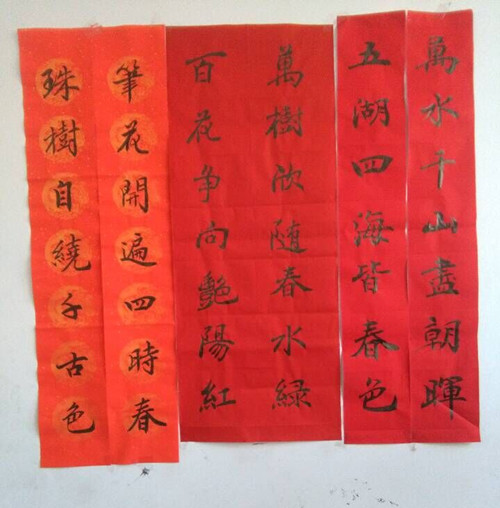 萬水千山盡朝暉
五湖四海皆春色
萬樹欣随春水緑
百花争向艶陽紅
筆花開遍四時春
珠樹自繞千古色